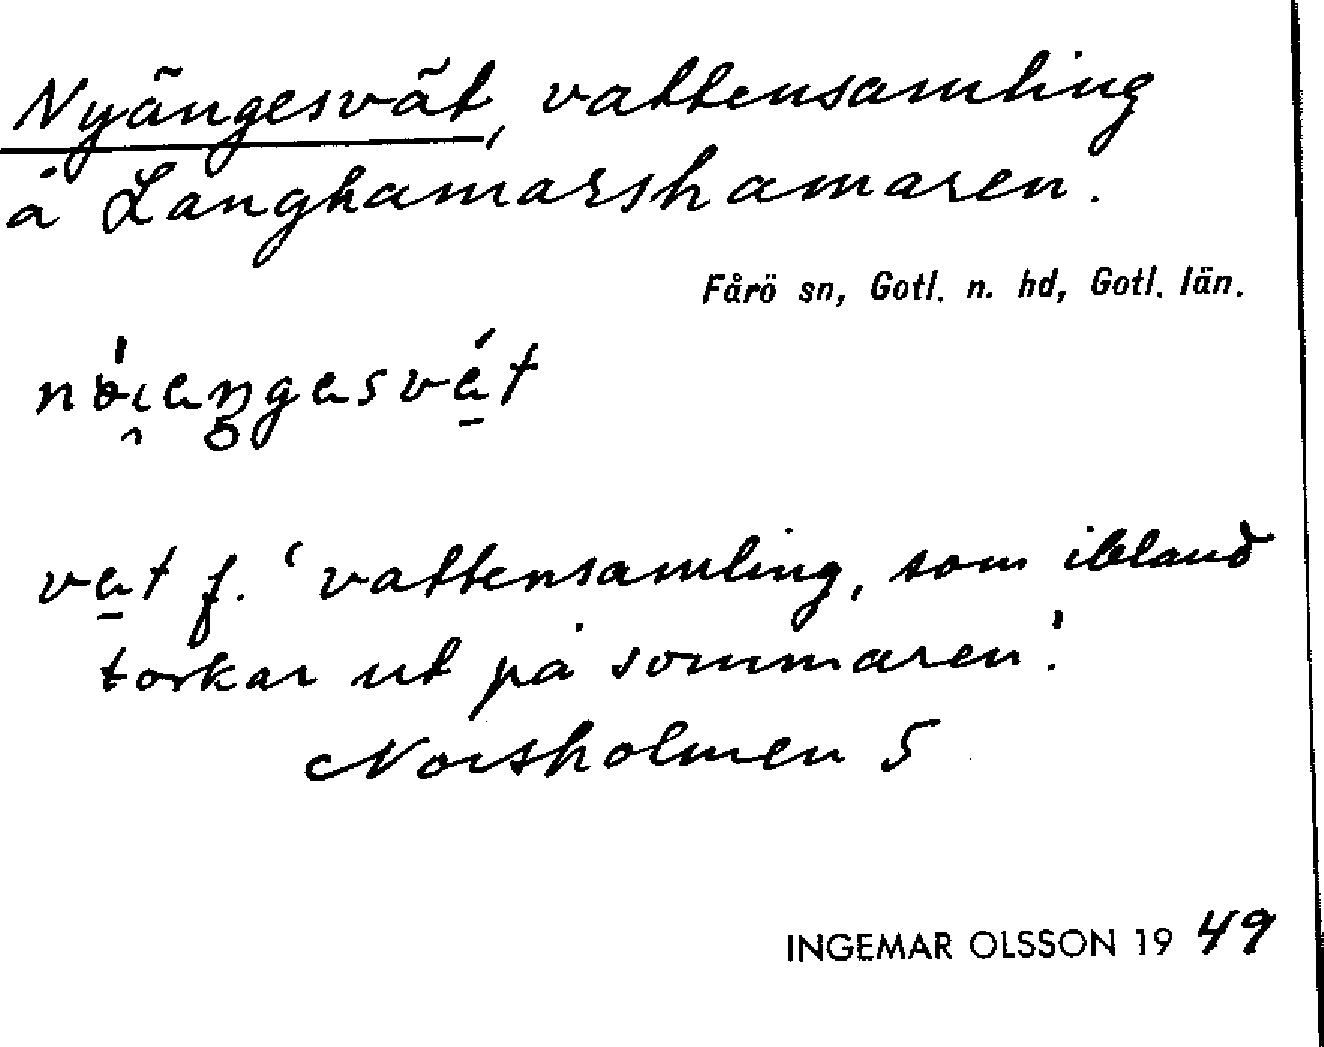 Nyängesvät, vattensamling
å Langhamarshamaren.
Fårö sn, Gotl. n. hd, Gotl. län.
vät f. ‘vattensamling, som ibland
torkar ut på sommaren’.
Norsholmen 5
INGEMAR OLSSON 19 49